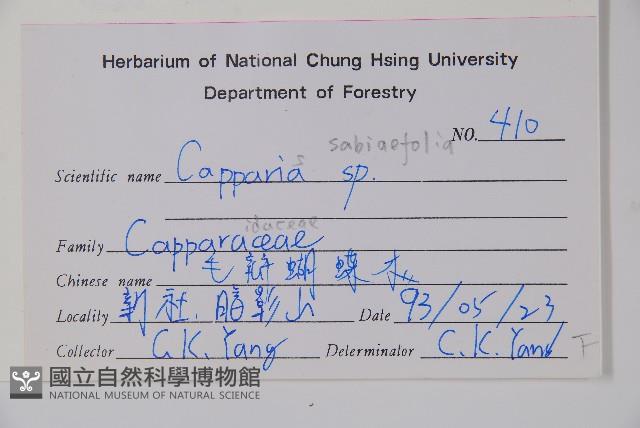 Herbarium of National Chung Hsing University
Department of Forestry
NO. 410
sabiaefolia
Scientific name Capparia s sp.
idaceae
Family Capparaceae
Chinese name 毛瓣蝴蝶木
Locality 新社. 暗影山 Date 93/05/23
Collector C.K. Yang Determinator C.K. Yang F
國立自然科學博物館
NATIONAL MUSEUM OF NATURAL SCIENCE